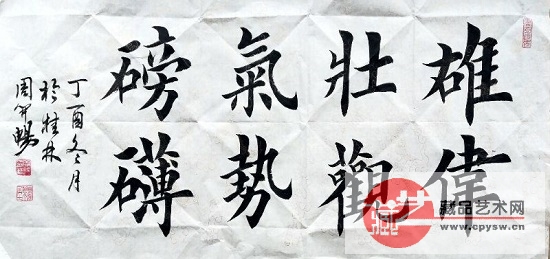 雄偉
壯觀
氣勢
磅礴
丁酉冬月
於桂林
周開暢
藏艺
藏品艺术网
www.cpysw.cn